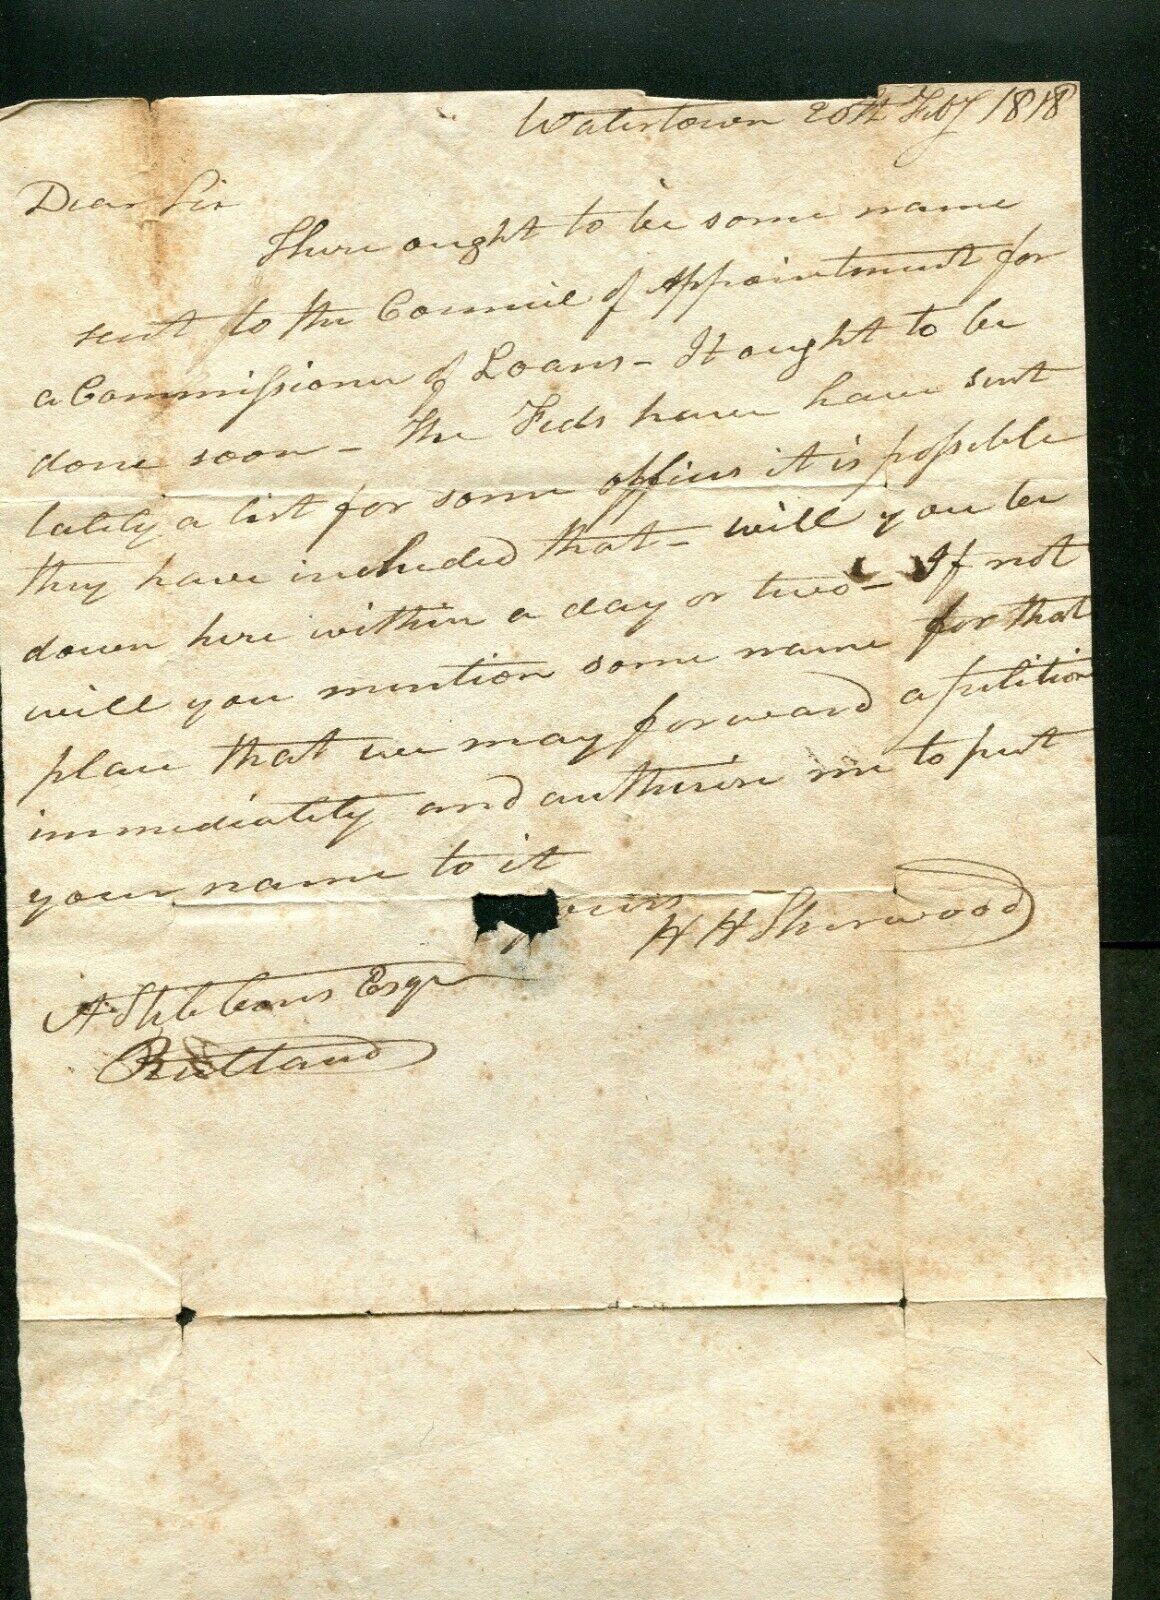 Watertown 20th Feby 1818
Dear Sir
There ought to be some name
sent to the Council of Appointment for
a Commissioner of Loans - It ought to be
done soon - The Feds have have sent
lately a list for some offices it is possible
they have included that - will you be
down here within a day or two - If not
will you mention some name for that
place that we may forward a petition
immediately and authorise me to put
your name to it
yours
H H Sherwood
A Stebbens Esqr
Rutland